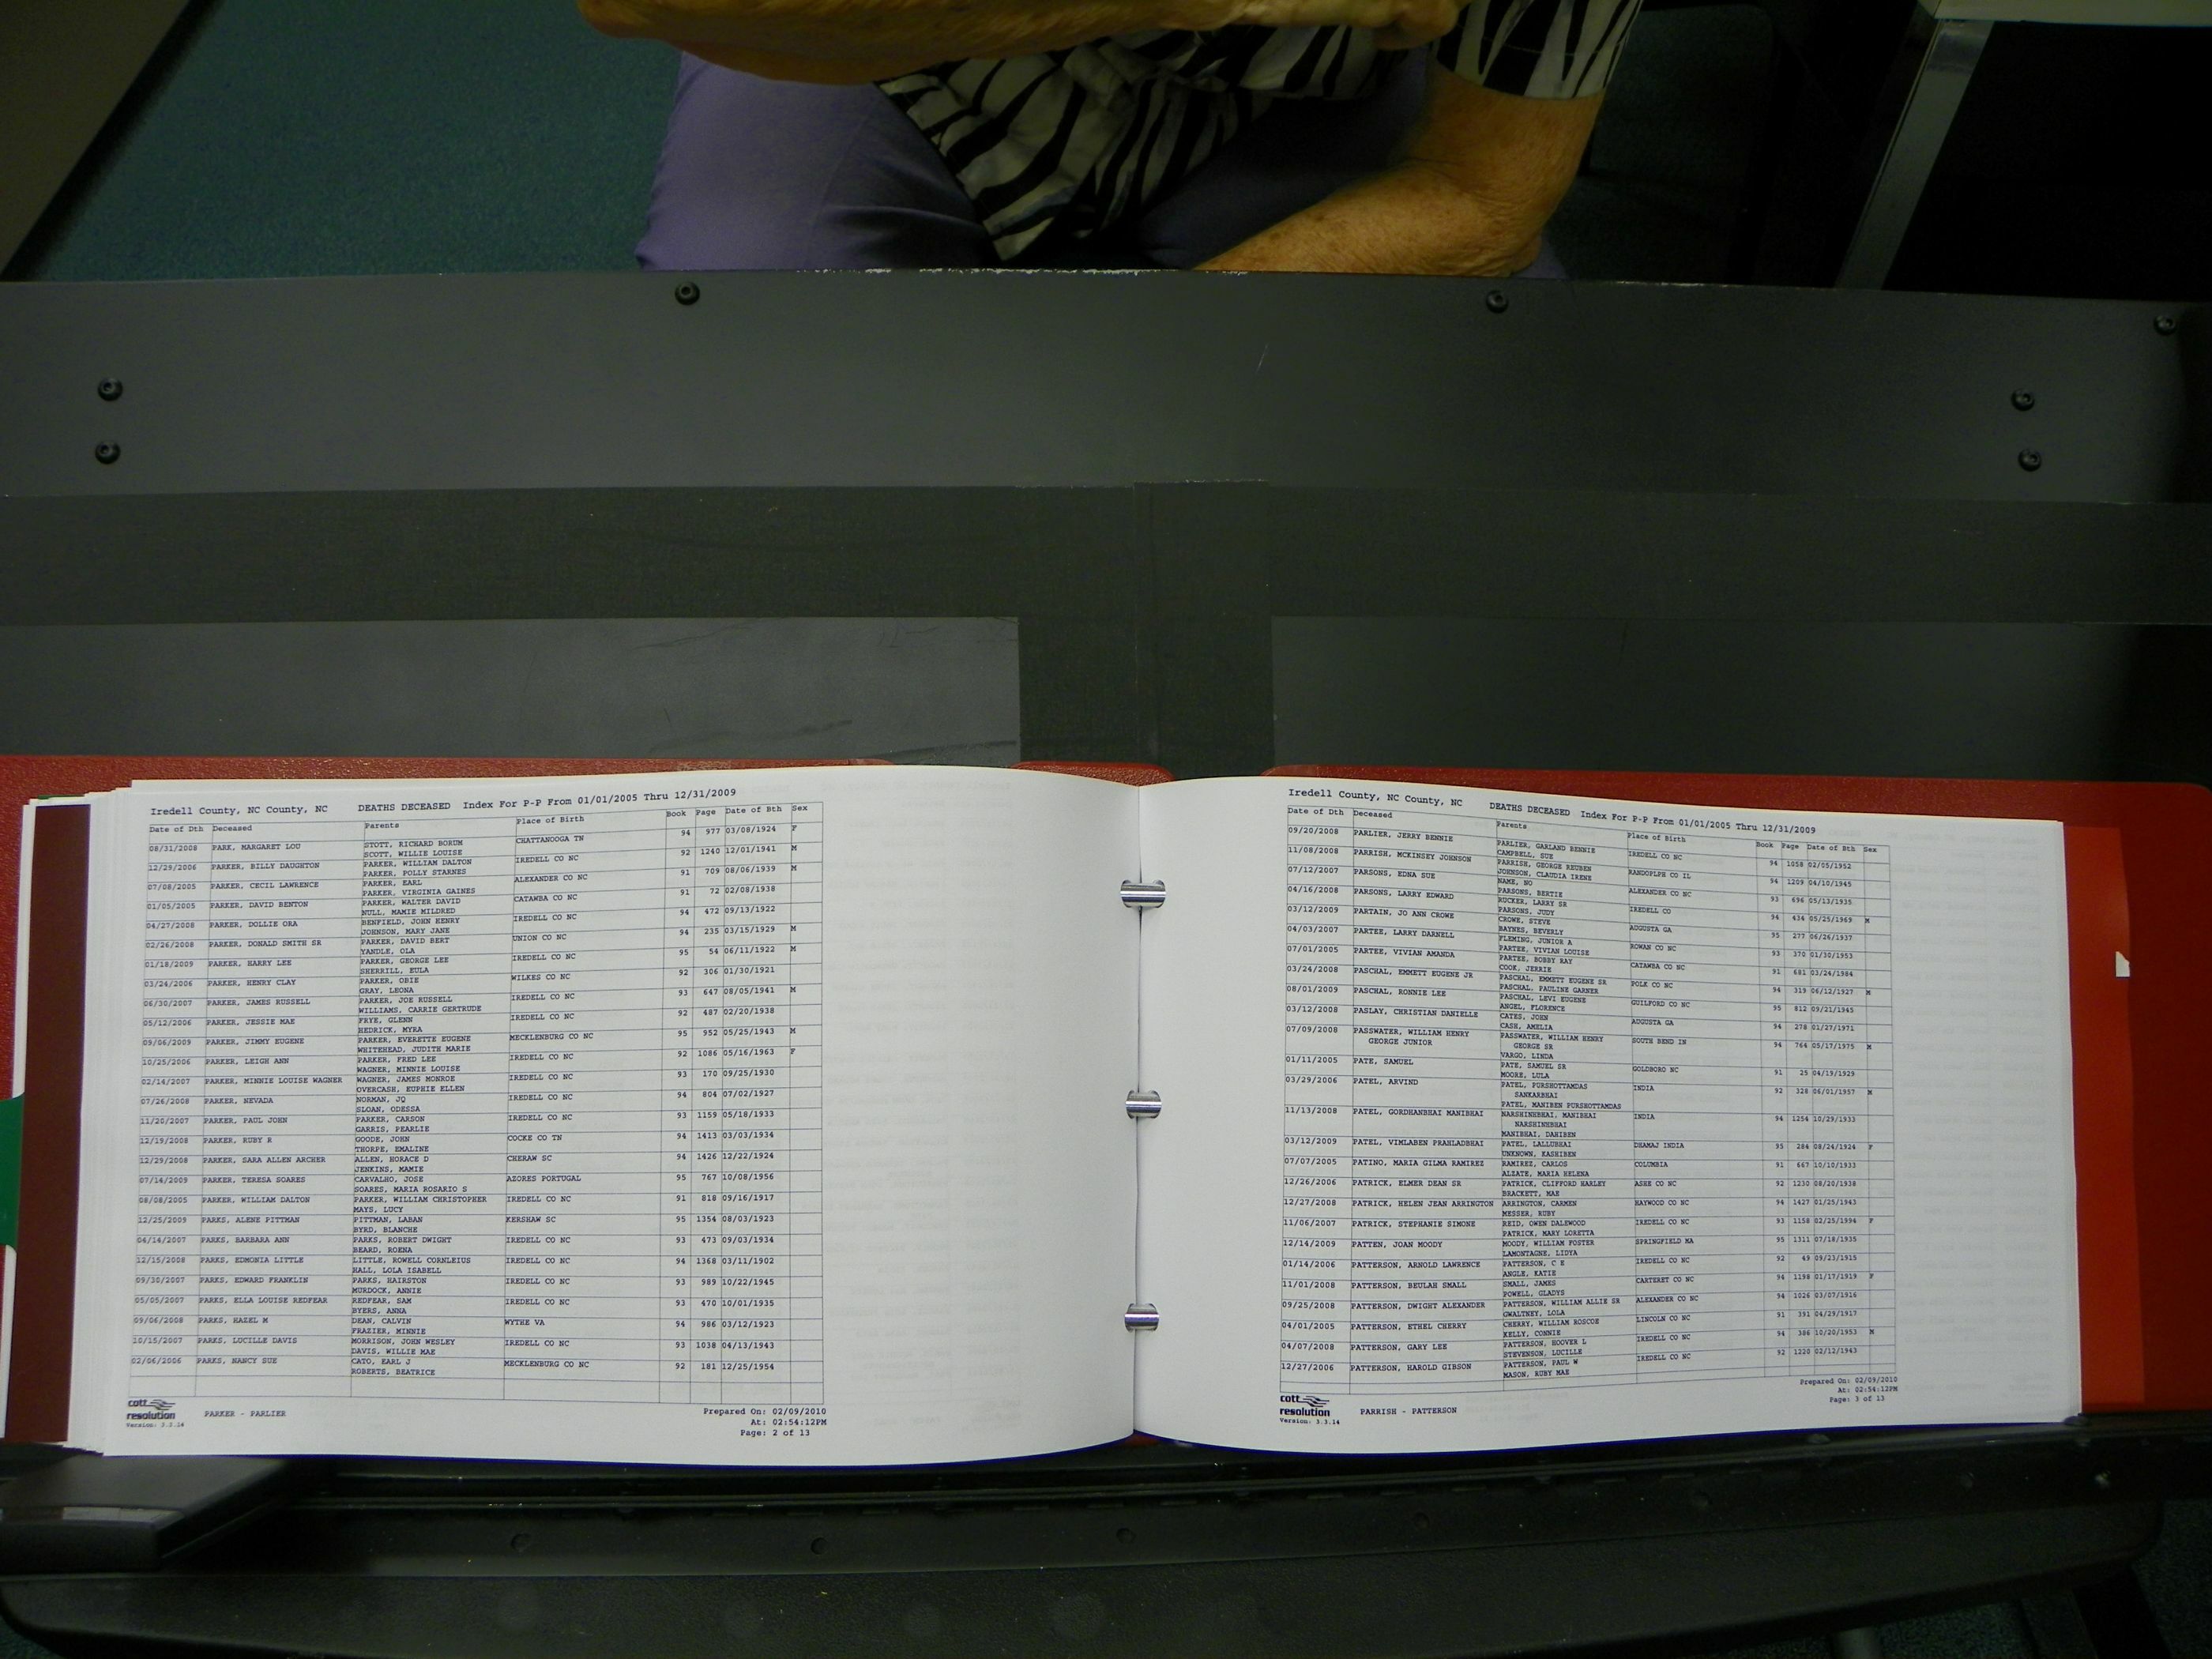 Iredell County, NC County, NC DEATHS DECEASED Index For P-P From 01/01/2005 Thru 12/31/2009
Date of Dth Deceased Parents Place of Birth Book Page Date of Bth Sex
08/31/2008 PARK, MARGARET LOU STOTT, RICHARD BORUM CHATTANOOGA TN 94 977 03/08/1924 F
SCOTT, WILLIE LOUISE
12/29/2006 PARKER, BILLY DAUGHTON PARKER, WILLIAM DALTON IREDELL CO NC 92 1240 12/01/1941 M
PARKER, POLLY STARNES
07/08/2005 PARKER, CECIL LAWRENCE PARKER, EARL ALEXANDER CO NC 91 709 08/06/1939 M
PARKER, VIRGINIA GAINES
01/05/2005 PARKER, DAVID BENTON PARKER, WALTER DAVID CATAWBA CO NC 91 72 02/08/1938
NULL, MAMIE MILDRED
04/27/2008 PARKER, DOLLIE ORA BENFIELD, JOHN HENRY IREDELL CO NC 94 472 09/13/1922
JOHNSON, MARY JANE
02/26/2008 PARKER, DONALD SMITH SR PARKER, DAVID BERT UNION CO NC 94 235 03/15/1929 M
YANDLE, OLA
01/18/2009 PARKER, HARRY LEE PARKER, GEORGE LEE IREDELL CO NC 95 54 06/11/1922 M
SHERRILL, EULA
03/24/2006 PARKER, HENRY CLAY PARKER, OBIE WILKES CO NC 92 306 01/30/1921
GRAY, LEONA
06/30/2007 PARKER, JAMES RUSSELL PARKER, JOE RUSSELL IREDELL CO NC 93 647 08/05/1941 M
WILLIAMS, CARRIE GERTRUDE
05/12/2006 PARKER, JESSIE MAE FRYE, GLENN IREDELL CO NC 92 487 02/20/1938
HEDRICK, MYRA
09/06/2009 PARKER, JIMMY EUGENE PARKER, EVERETTE EUGENE MECKLENBURG CO NC 95 952 05/25/1943 M
WHITEHEAD, JUDITH MARIE
10/25/2006 PARKER, LEIGH ANN PARKER, FRED LEE IREDELL CO NC 92 1086 05/16/1963 F
WAGNER, MINNIE LOUISE
02/14/2007 PARKER, MINNIE LOUISE WAGNER WAGNER, JAMES MONROE IREDELL CO NC 93 170 09/25/1930
OVERCASH, EUPHIE ELLEN
07/26/2008 PARKER, NEVADA NORMAN, JQ IREDELL CO NC 94 804 07/02/1927
SLOAN, ODESSA
11/20/2007 PARKER, PAUL JOHN PARKER, CARSON IREDELL CO NC 93 1159 05/18/1933
GARRIS, PEARLIE
12/19/2008 PARKER, RUBY R GOODE, JOHN COCKE CO TN 94 1413 03/03/1934
THORPE, EMALINE
12/29/2008 PARKER, SARA ALLEN ARCHER ALLEN, HORACE D CHERAW SC 94 1426 12/22/1924
JENKINS, MAMIE
07/14/2009 PARKER, TERESA SOARES CARVALHO, JOSE AZORES PORTUGAL 95 767 10/08/1956
SOARES, MARIA ROSARIO S
08/08/2005 PARKER, WILLIAM DALTON PARKER, WILLIAM CHRISTOPHER IREDELL CO NC 91 818 09/16/1917
MAYS, LUCY
12/25/2009 PARKS, ALENE PITTMAN PITTMAN, LABAN KERSHAW SC 95 1354 08/03/1923
BYRD, BLANCHE
04/14/2007 PARKS, BARBARA ANN PARKS, ROBERT DWIGHT IREDELL CO NC 93 473 09/03/1934
BEARD, ROENA
12/15/2008 PARKS, EDMONIA LITTLE LITTLE, ROWELL CORNLEIUS IREDELL CO NC 94 1368 03/11/1902
HALL, LOLA ISABELL
09/30/2007 PARKS, EDWARD FRANKLIN PARKS, HAIRSTON IREDELL CO NC 93 989 10/22/1945
MURDOCK, ANNIE
05/05/2007 PARKS, ELLA LOUISE REDFEAR REDFEAR, SAM IREDELL CO NC 93 470 10/01/1935
BYERS, ANNA
09/06/2008 PARKS, HAZEL M DEAN, CALVIN WYTHE VA 94 986 03/12/1923
FRAZIER, MINNIE
10/15/2007 PARKS, LUCILLE DAVIS MORRISON, JOHN WESLEY IREDELL CO NC 93 1038 04/13/1943
DAVIS, WILLIE MAE
02/06/2006 PARKS, NANCY SUE CATO, EARL J MECKLENBURG CO NC 92 181 12/25/1954
ROBERTS, BEATRICE
cott
resolution PARKER - PARLIER Prepared On: 02/09/2010
Version: 3.3.14 At: 02:54:12PM
Page: 2 of 13
Iredell County, NC County, NC DEATHS DECEASED Index For P-P From 01/01/2005 Thru 12/31/2009
Date of Dth Deceased Parents Place of Birth Book Page Date of Bth Sex
09/20/2008 PARLIER, JERRY BENNIE PARLIER, GARLAND BENNIE IREDELL CO NC 94 1058 02/05/1952
CAMPBELL, SUE
11/08/2008 PARRISH, MCKINSEY JOHNSON PARRISH, GEORGE REUBEN RANDOPLPH CO IL 94 1209 04/10/1945
JOHNSON, CLAUDIA IRENE
07/12/2007 PARSONS, EDNA SUE NAME, NO ALEXANDER CO NC 93 696 05/13/1935
PARSONS, BERTIE
04/16/2008 PARSONS, LARRY EDWARD RUCKER, LARRY SR IREDELL CO 94 434 05/25/1969 M
PARSONS, JUDY
03/12/2009 PARTAIN, JO ANN CROWE CROWE, STEVE AUGUSTA GA 95 277 06/26/1937
BAYNES, BEVERLY
04/03/2007 PARTEE, LARRY DARNELL FLEMING, JUNIOR A ROWAN CO NC 93 370 01/30/1953
PARTEE, VIVIAN LOUISE
07/01/2005 PARTEE, VIVIAN AMANDA PARTEE, BOBBY RAY CATAWBA CO NC 91 681 03/24/1984
COOK, JERRIE
03/24/2008 PASCHAL, EMMETT EUGENE JR PASCHAL, EMMETT EUGENE SR POLK CO NC 94 319 06/12/1927 M
PASCHAL, PAULINE GARNER
08/01/2009 PASCHAL, RONNIE LEE PASCHAL, LEVI EUGENE GUILFORD CO NC 95 812 09/21/1945
ANGEL, FLORENCE
03/12/2008 PASLAY, CHRISTIAN DANIELLE CATES, JOHN AUGUSTA GA 94 278 01/27/1971
CASH, AMELIA
07/09/2008 PASSWATER, WILLIAM HENRY PASSWATER, WILLIAM HENRY SOUTH BEND IN 94 764 05/17/1975 M
GEORGE JUNIOR GEORGE SR
VARGO, LINDA
01/11/2005 PATE, SAMUEL PATE, SAMUEL SR GOLDBORO NC 91 25 04/19/1929
MOORE, LULA
03/29/2006 PATEL, ARVIND PATEL, PURSHOTTAMDAS INDIA 92 328 06/01/1957 M
SANKARBHAI
PATEL, MANIBEN PURSHOTTAMDAS
11/13/2008 PATEL, GORDHANBHAI MANIBHAI NARSHINHBHAI, MANIBHAI INDIA 94 1254 10/29/1933
NARSHINHBHAI
MANIBHAI, DAHIBEN
03/12/2009 PATEL, VIMLABEN PRAHLADBHAI PATEL, LALLUBHAI DHAMAJ INDIA 95 284 08/24/1924 F
UNKNOWN, KASHIBEN
07/07/2005 PATINO, MARIA GILMA RAMIREZ RAMIREZ, CARLOS COLUMBIA 91 667 10/10/1933
ALZATE, MARIA HELENA
12/26/2006 PATRICK, ELMER DEAN SR PATRICK, CLIFFORD HARLEY ASHE CO NC 92 1230 08/20/1938
BRACKETT, MAE
12/27/2008 PATRICK, HELEN JEAN ARRINGTON ARRINGTON, CARMEN HAYWOOD CO NC 94 1427 01/25/1943
MESSER, RUBY
11/06/2007 PATRICK, STEPHANIE SIMONE REID, OWEN DALEWOOD IREDELL CO NC 93 1158 02/25/1994 F
PATRICK, MARY LORETTA
12/14/2009 PATTEN, JOAN MOODY MOODY, WILLIAM FOSTER SPRINGFIELD MA 95 1311 07/18/1935
LAMONTAGNE, LIDYA
01/14/2006 PATTERSON, ARNOLD LAWRENCE PATTERSON, C E IREDELL CO NC 92 49 09/23/1915
ANGLE, KATIE
11/01/2008 PATTERSON, BEULAH SMALL SMALL, JAMES CARTERET CO NC 94 1198 01/17/1919 F
POWELL, GLADYS
09/25/2008 PATTERSON, DWIGHT ALEXANDER PATTERSON, WILLIAM ALLIE SR ALEXANDER CO NC 94 1026 03/07/1916
GWALTNEY, LOLA
04/01/2005 PATTERSON, ETHEL CHERRY CHERRY, WILLIAM ROSCOE LINCOLN CO NC 91 391 04/29/1917
KELLY, CONNIE
04/07/2008 PATTERSON, GARY LEE PATTERSON, HOOVER L IREDELL CO NC 94 386 10/20/1953 M
STEVENSON, LUCILLE
12/27/2006 PATTERSON, HAROLD GIBSON PATTERSON, PAUL W IREDELL CO NC 92 1220 02/12/1943
MASON, RUBY MAE
cott
resolution PARRISH - PATTERSON Prepared On: 02/09/2010
Version: 3.3.14 At: 02:54:12PM
Page: 3 of 13